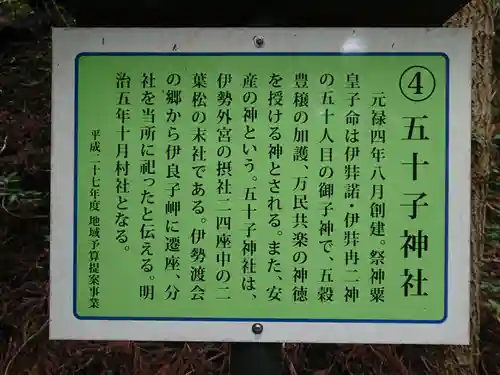 ④五十子神社
元禄四年八月創建。祭神粟
皇子命は伊弉諾・伊弉冉二神
の五十人目の御子神で、五穀
豊穣の加護、万民共楽の神徳
を授ける神とされる。また、安
産の神という。五十子神社は、
伊勢外宮の摂社二四座中の二
葉松の末社である。伊勢渡会
の郷から伊良子岬に遷座、分
社を当所に祀ったと伝える。明
治五年十月村社となる。
平成二十七年度 地域予算提案事業